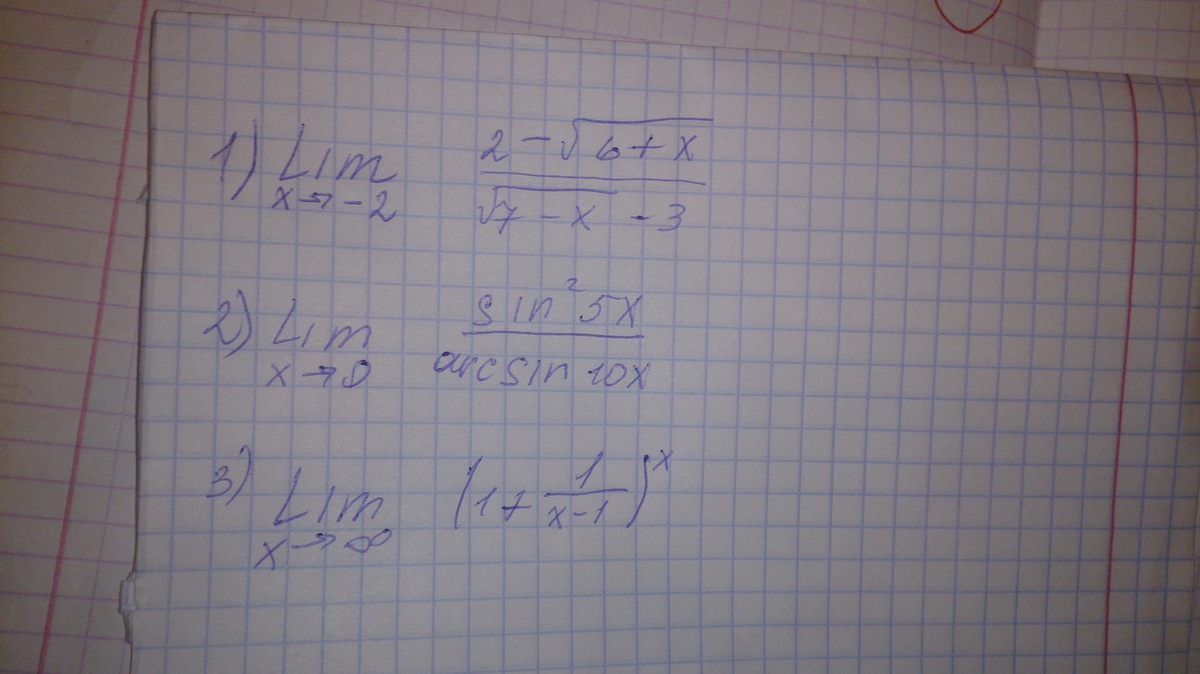 1) Lim x→-2 (2-√(6+x))/(√(7-x) -3)
2) Lim x→0 (sin²5x)/(arcsin 10x)
3) Lim x→∞ (1+1/(x-1))^x